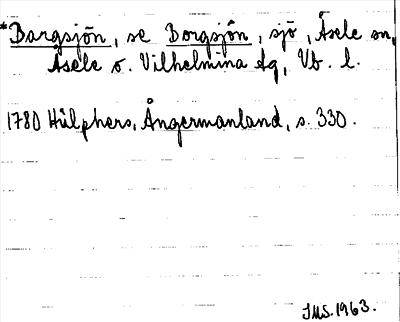 *Bargsjön, se Borgsjön, sjö, Åsele sn,
Åsele o. Vilhelmina tg, Vb. l.
1780 Hülphers, Ångermanland, s. 330.
IMS. 1963.